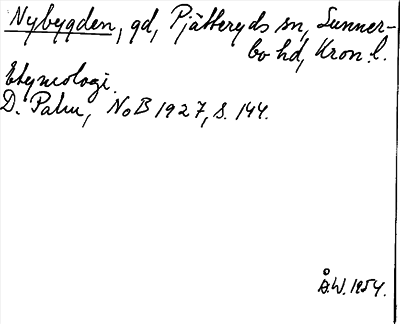 Nybygden, gd, Pjätteryds sn, Sunner-
bo hd, Kron. l.
Etymologi.
D. Palm, NoB 1927, s. 144.
Å.W. 1954.